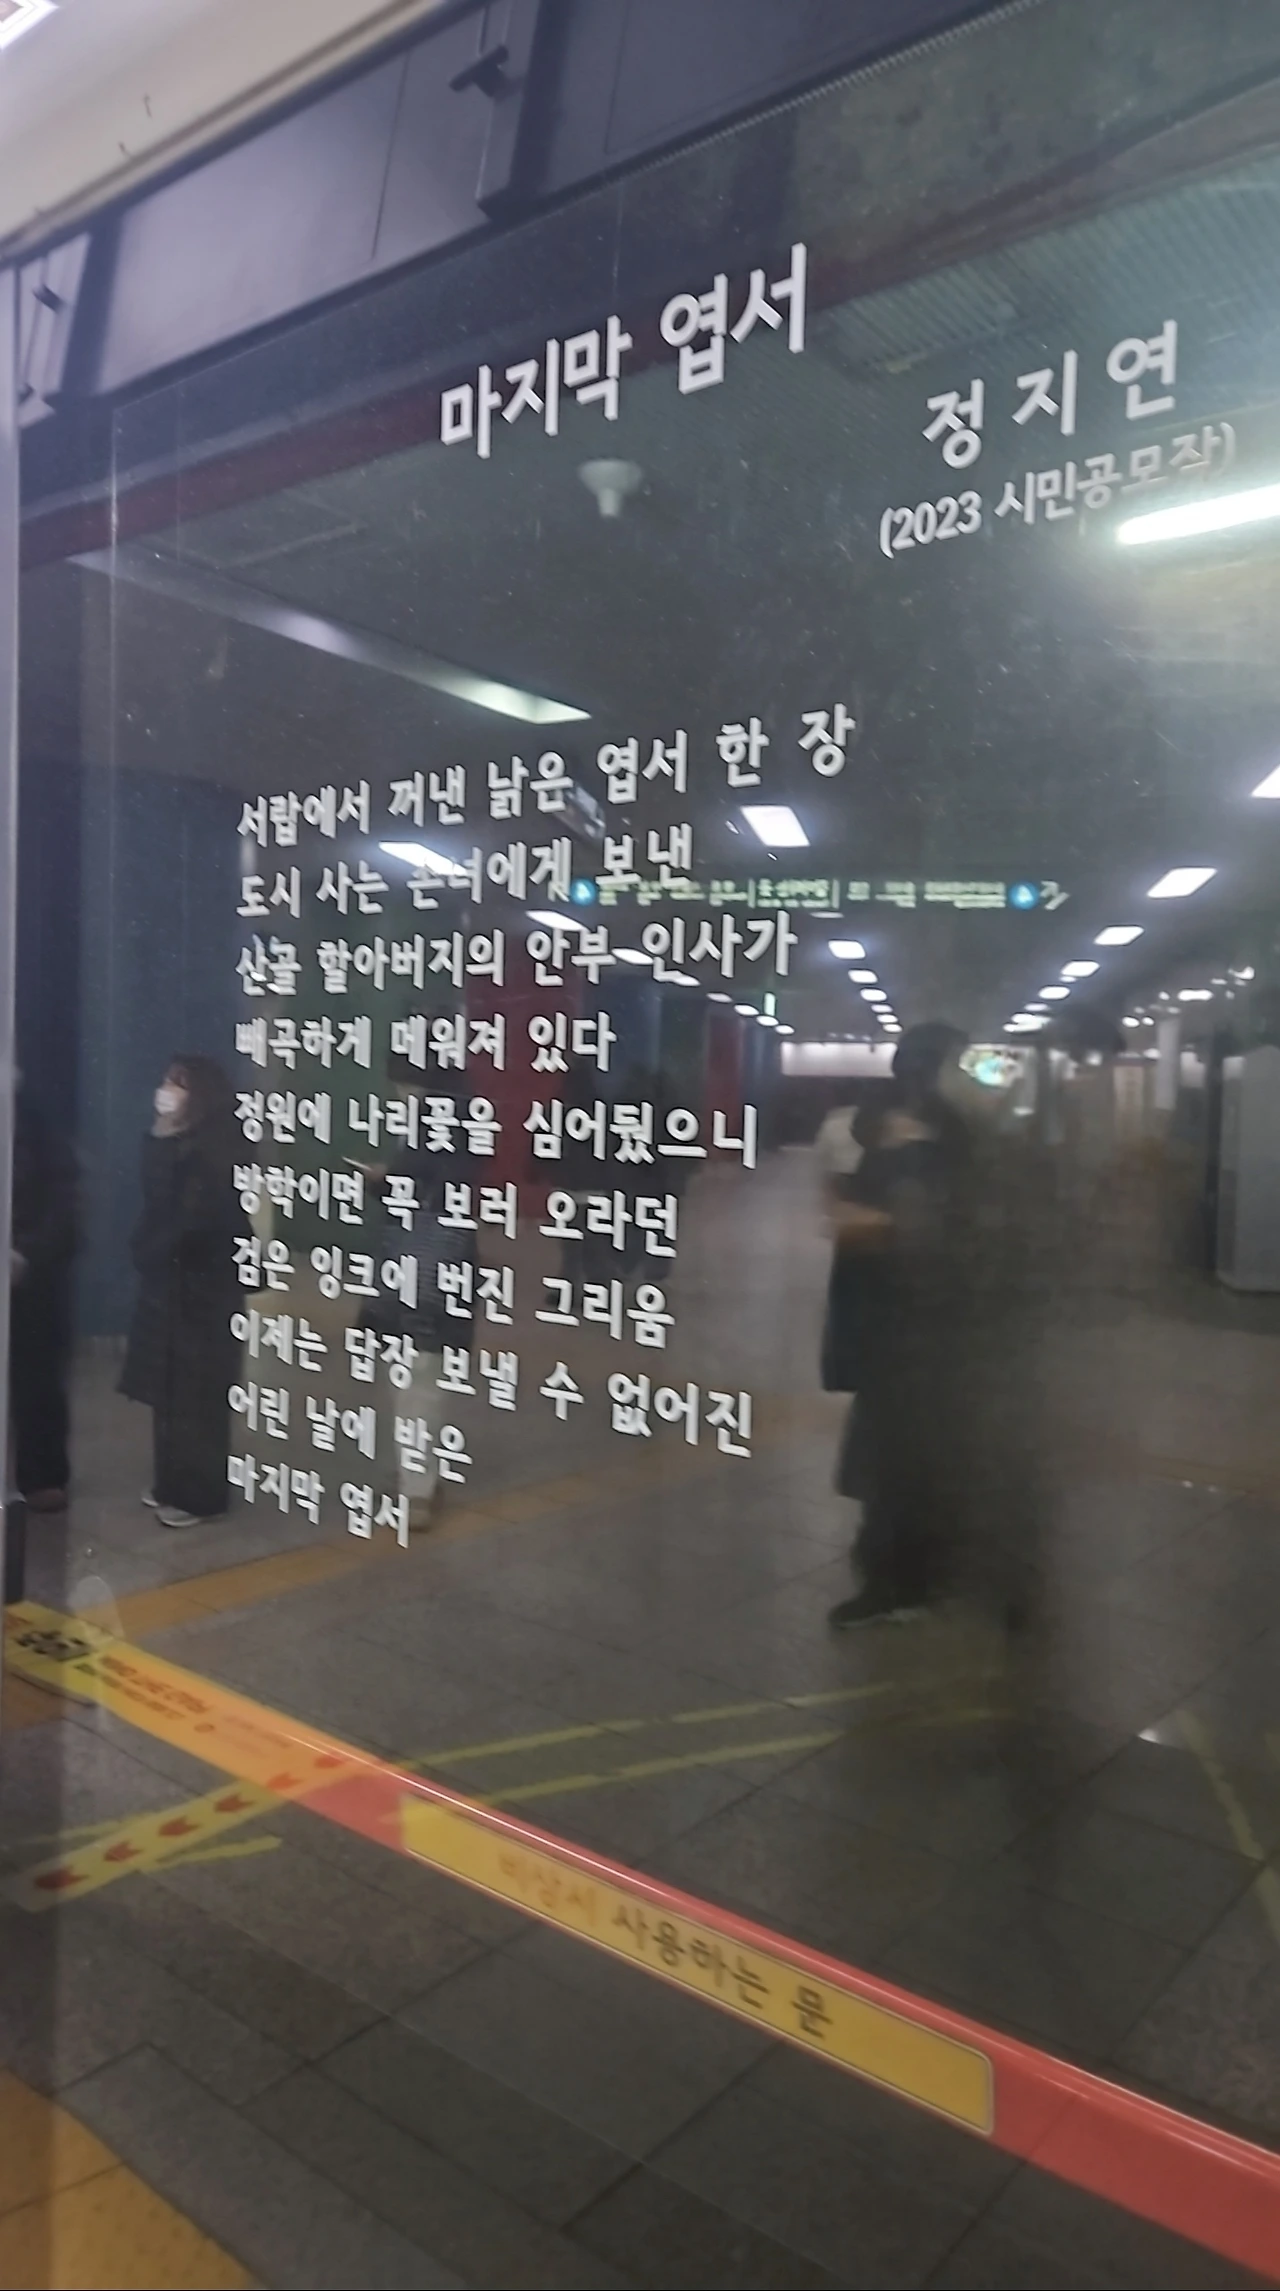 마지막 엽서
정 지 연
(2023 시민공모작)
서랍에서 꺼낸 낡은 엽서 한 장
도시 사는 손녀에게 보낸
산골 할아버지의 안부 인사가
빼곡하게 메워져 있다
정원에 나리꽃을 심어뒀으니
방학이면 꼭 보러 오라던
검은 잉크에 번진 그리움
이제는 답장 보낼 수 없어진
어린 날에 받은
마지막 엽서
비상시 사용하는 문